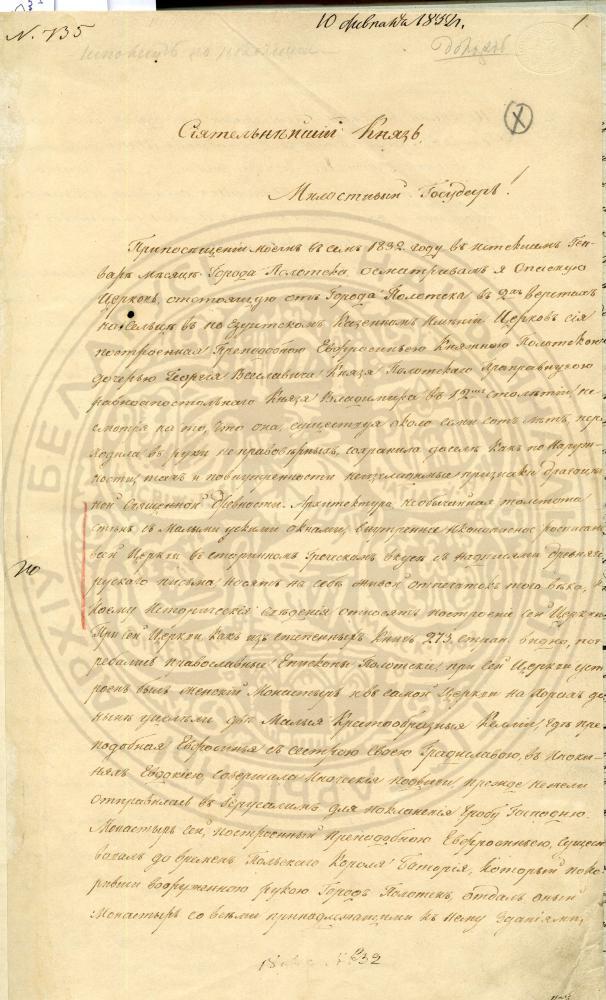 N. 735
10 февраля 1832 г.
1
Сіятельнѣйшій Князь
Милостивый Государь!
При посѣщеніи моемъ въ семъ 1832 году въ истекшемъ Ген-
варѣ мѣсяцѣ Города Полотска осматривалъ я Спаскую
Церковь, отстоящую отъ Города Полотска въ 2хъ верстахъ
на Сельцѣ въ по Езуитскомъ Казенномъ имѣніи Церковь сія
построенная Преподобною Евфросиньею Княжною Полотскою
дочерью Георгія Всеславича Князя Полотскаго Праправнукою
равноапостольнаго Князя Владимира въ 12мъ столѣтіи, не
смотря на то, что она, существуя около семи сотъ лѣтъ, пере
ходила въ руки не правовѣрныхъ, сохранила доселѣ какъ по наруж
ности, такъ и по внутренности неизгладимые признаки драгоцѣн
ной священной древности. Архитектура, необычайная толстота
стѣнъ съ малыми узкими окнами, внутреннее иконописное росписаніе
всей Церкви въ старинномъ Греческомъ вкусѣ съ надписями древняго
рускаго письма носятъ на себѣ живой отпечатокъ того вѣка, къ
коему Историческія свѣденія относятъ построеніе сей Церкви.
При сей Церкви какъ изъ степенныхъ книгъ 273. стран. видно, пог
ребались православные Епископы Полотскіе; при сей Церкви уст
роенъ былъ женскій Монастырь и въ самой Церкви на Хорахъ до
нынѣ уцѣлели двѣ Малыя Крестообразныя Келліи, гдѣ пре
подобная Евфросинья съ сестрою Своею Градиславою, въ Иноки-
няхъ Евдокіею, совершала Иноческія подвиги прежде нежели
отправилась въ Іерусалимъ для поклоненія Гробу Господню.
Монастырь сей, построенный преподобною Евфросиньею, сущест
вовалъ до временъ Польскаго Короля Баторія, который поко
ривши вооруженною рукою Городъ Полотскъ, отдалъ оный
Монастырь со всѣми принадлежащими къ нему зданіями,